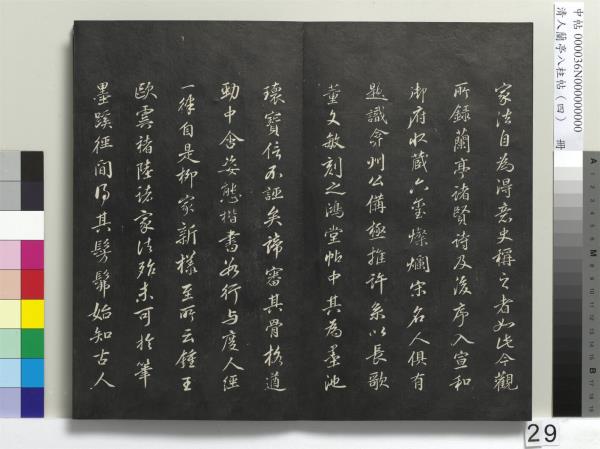 家法自為得意史稱之者如此今觀
所錄蘭亭諸賢詩及後序入宣和
御府收藏六璽燦爛宋名人俱有
題識弇州公備極推許系以長歌
董文敏刻之鴻堂帖中其為墨池
瓌寶信不誣矣諦審其骨格遒
勁中含姿態楷書若行与度人經
一律自是柳家新樣至所云鍾王
歐虞褚陸諸家法殆未可於筆
墨蹊徑間得其髣髴始知古人
中帖 000036N000000000
清人蘭亭八柱帖（四） 冊
29